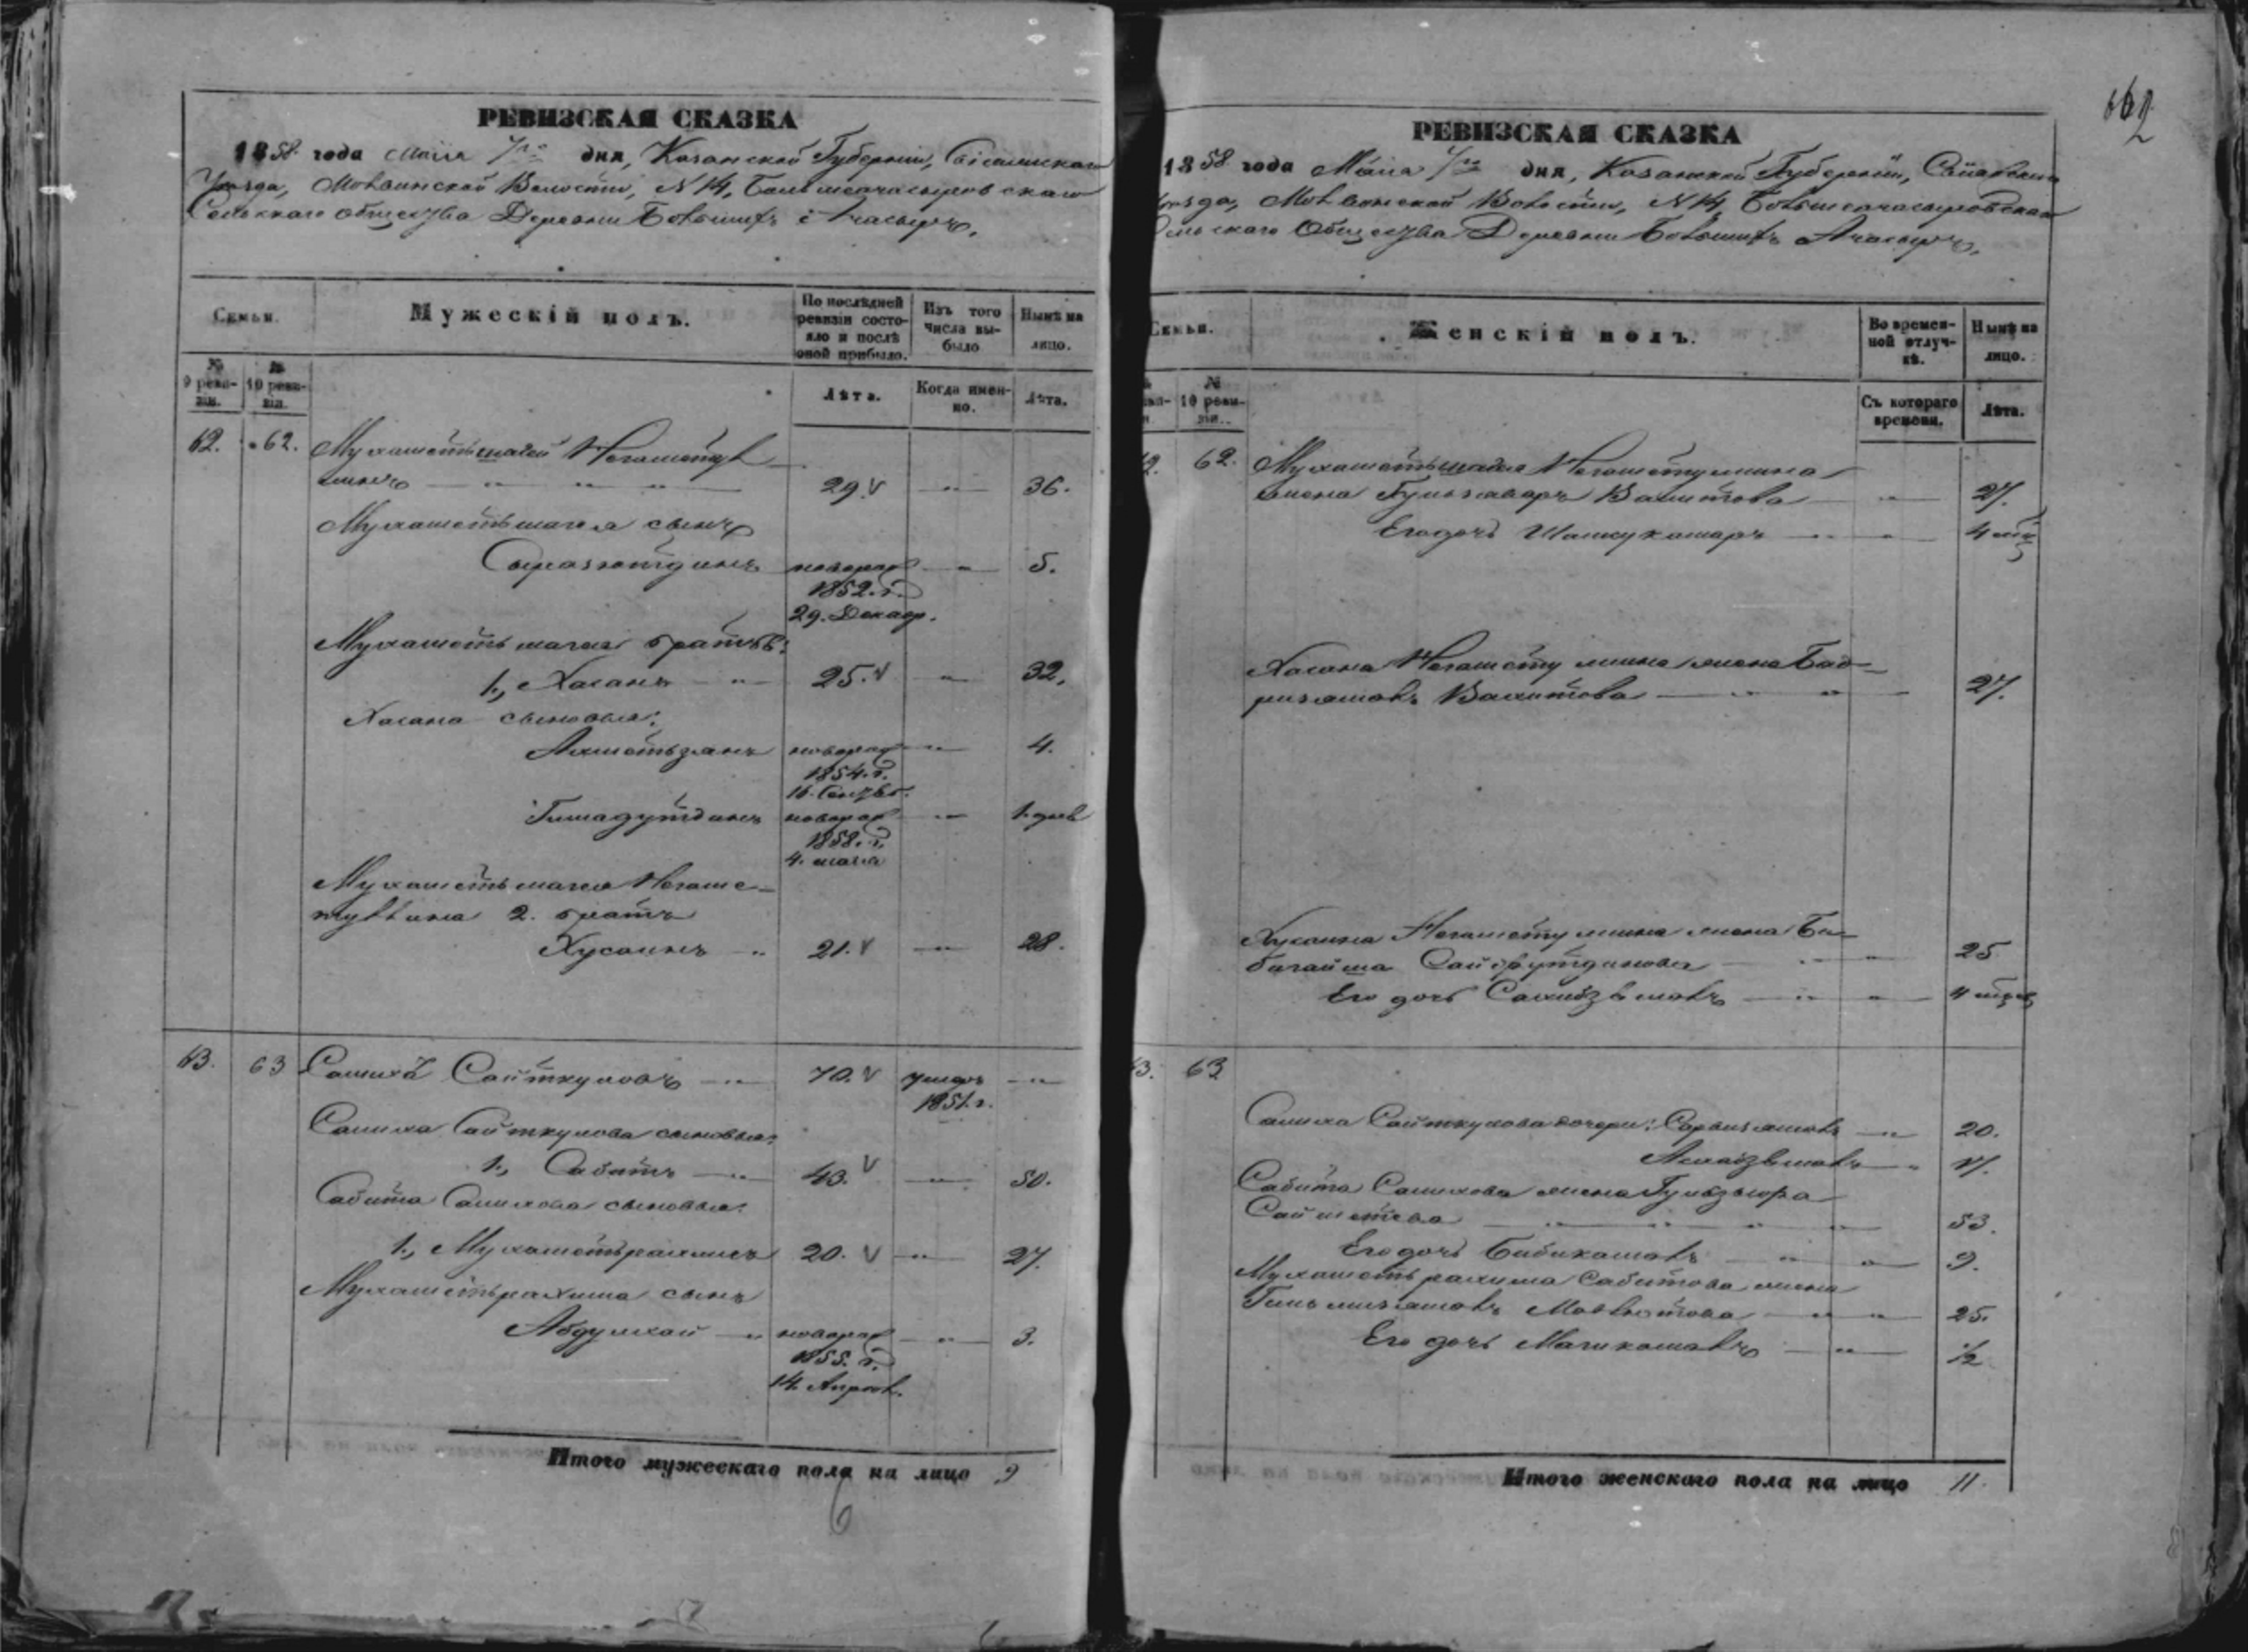 РЕВИЗСКАЯ СКАЗКА
1858 года Маія 7го дня, Казанской Губерніи, Свіяжскаго
Уѣзда, Молвинской Волости, N 14, Большеачасыровскаго
Сельскаго общества Деревни Большихъ Ачасыръ.
Семьи. Мужескій полъ. По послѣдней ревизіи состояло и послѣ оной прибыло. Изъ того числа выбыло Нынѣ на лицо.
№ 9 ревизіи. № 10 ревизіи. Лѣта. Когда именно. Лѣта.
62. 62. Мухаметьшагей Негаметул
линъ 29. 36.
Мухаметьшагея сынъ
Сыразютдинъ новорож 5.
1852. г.
29. Декабр.
Мухаметьшагея братья:
1., Хасанъ 25. 32.
Хасана сыновья:
Ахметьзянъ новорож 4.
1854. г.
16. Сентяб.
Гимадутдинъ новорож 1. днев
1858. г.
4. маія
Мухаметьшагея Негаме-
туллина 2. братъ
Хусаинъ 21. 28.
63. 63 Салихъ Сайткуловъ 70. умеръ
1851. г.
Салиха Сайткулова сыновья:
1., Сабитъ 43. 50.
Сабита Салихова сыновья:
1., Мухаметьрахимъ 20. 27.
Мухаметьрахима сынъ
Абдулхай новорож 3.
1855. г.
14. Апрѣл.
Итого мужескаго пола на лицо 9
6
662
РЕВИЗСКАЯ СКАЗКА
1858 года Маія 7го дня, Казанской Губерніи, Свіяжскаго
Уѣзда, Молвинской Волости, N 14, Большеачасыровскаго
Сельскаго Общества Деревни Большихъ Ачасыръ.
Семьи. Женскій полъ. Во временной отлучкѣ. Нынѣ на лицо.
№ 10 ревизіи. Съ котораго времени. Лѣта.
62. Мухаметьшагея Негаметуллина
жена Гульжаваръ Валитова 27.
Его дочь Шамкукамаръ 4 мѣс
Хасана Негаметуллина жена Бад-
ризямалъ Валитова 27.
Хусаина Негаметуллина жена Би-
бигайша Сайфутдинова 25
Его дочь Сахибзямалъ 4 мѣс
63. 63
Салиха Сайткулова дочери: Сарвизямалъ 20.
17.
Сабита Салихова жена Гульзюгра
Сайметева 53.
Его дочь Бибикамалъ 9.
Мухаметьрахима Сабитова жена
Мавлютова 25.
Его дочь Магикамалъ 1/2
Итого женскаго пола на лицо 11.